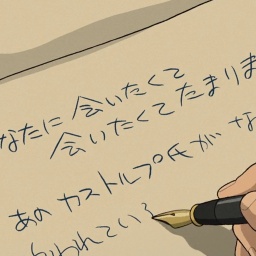 なたに会いたくて
会いたくてたまりま
あのカストルプ氏がな
われている